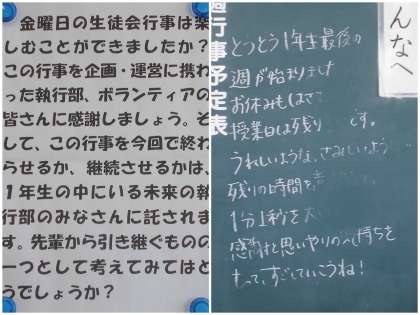 金曜日の生徒会行事は楽
しむことができましたか？
この行事を企画・運営に携わ
った執行部、ボランティアの
皆さんに感謝しましょう。そ
して、この行事を今回で終わ
らせるか、継続させるかは、
１年生の中にいる未来の執
行部のみなさんに託されま
す。先輩から引き継ぐものの
一つとして考えてみてはど
うでしょうか？
んなへ
行事予定表
とうとう1年生最後の
週が始まりました
お休みも
授業日は残り です。
うれしいような、さみしいよう
残りの時間を
1分1秒を大
感謝と思いやりの 持ちを
もって、すごしていこうね！